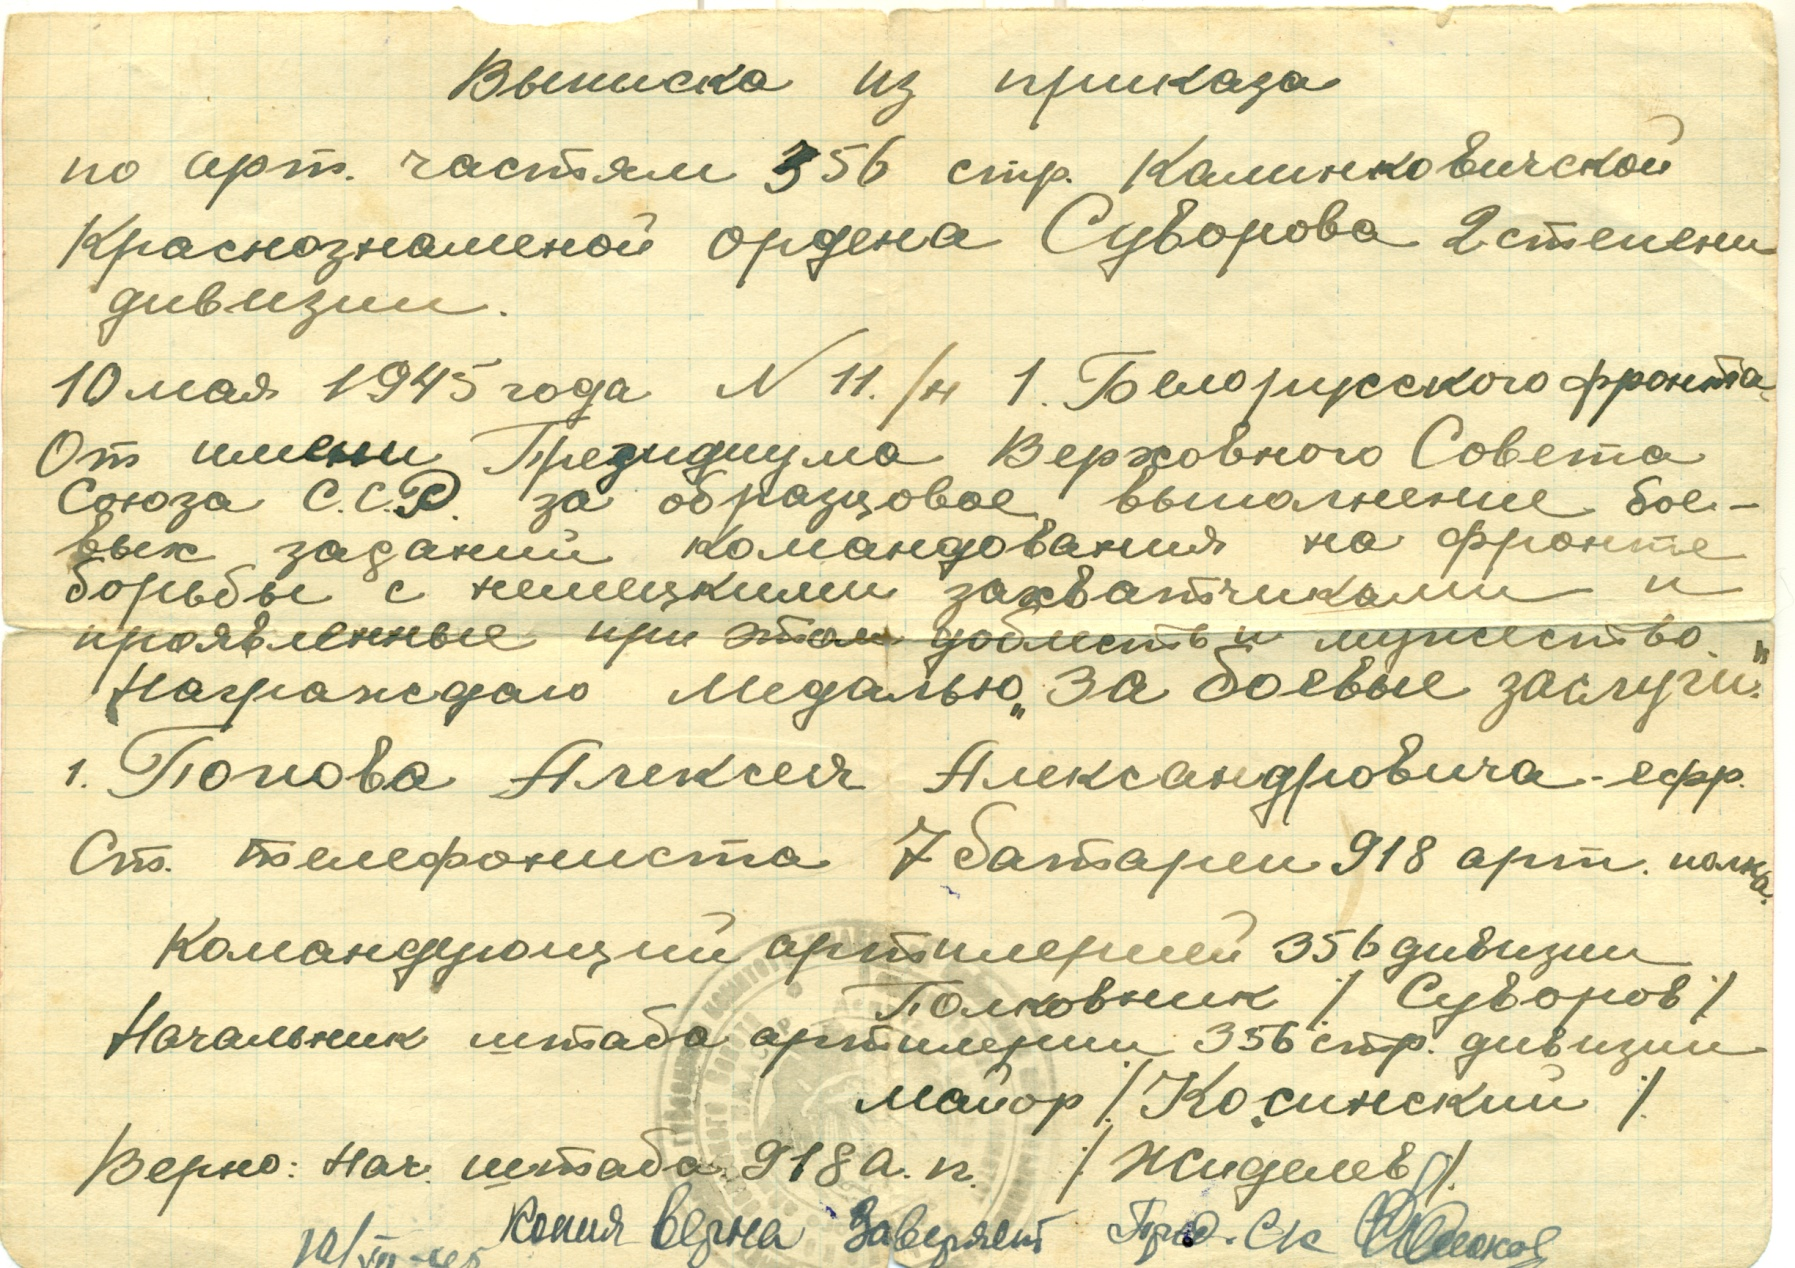 Выписка из приказа
по арт. частям 356 стр. Калинковичской
Краснознаменой ордена Суворова 2 степени
дивизии.
10 мая 1945 года N 11./н 1. Белорусского фронта
От имени Президиума Верховного Совета
Союза С.С.Р. за образцовое выполнение бое-
вых заданий командования на фронте
борьбы с немецкими захватчиками и
проявленные при этом доблесть и мужество.
Награждаю Медалью „За боевые заслуги."
1. Попова Алексея Александровича - ефр.
Ст. телефониста 7 батареи 918 арт. полка.
Командующий артилерией 356 дивизии
Полковник /Суворов/
Начальник штаба артилерии 356 стр. дивизии
майор /Косинский/
Верно: Нач. штаба 918 а. п. /Жиделев/.
Копия верна Заверяет Пред. Ск